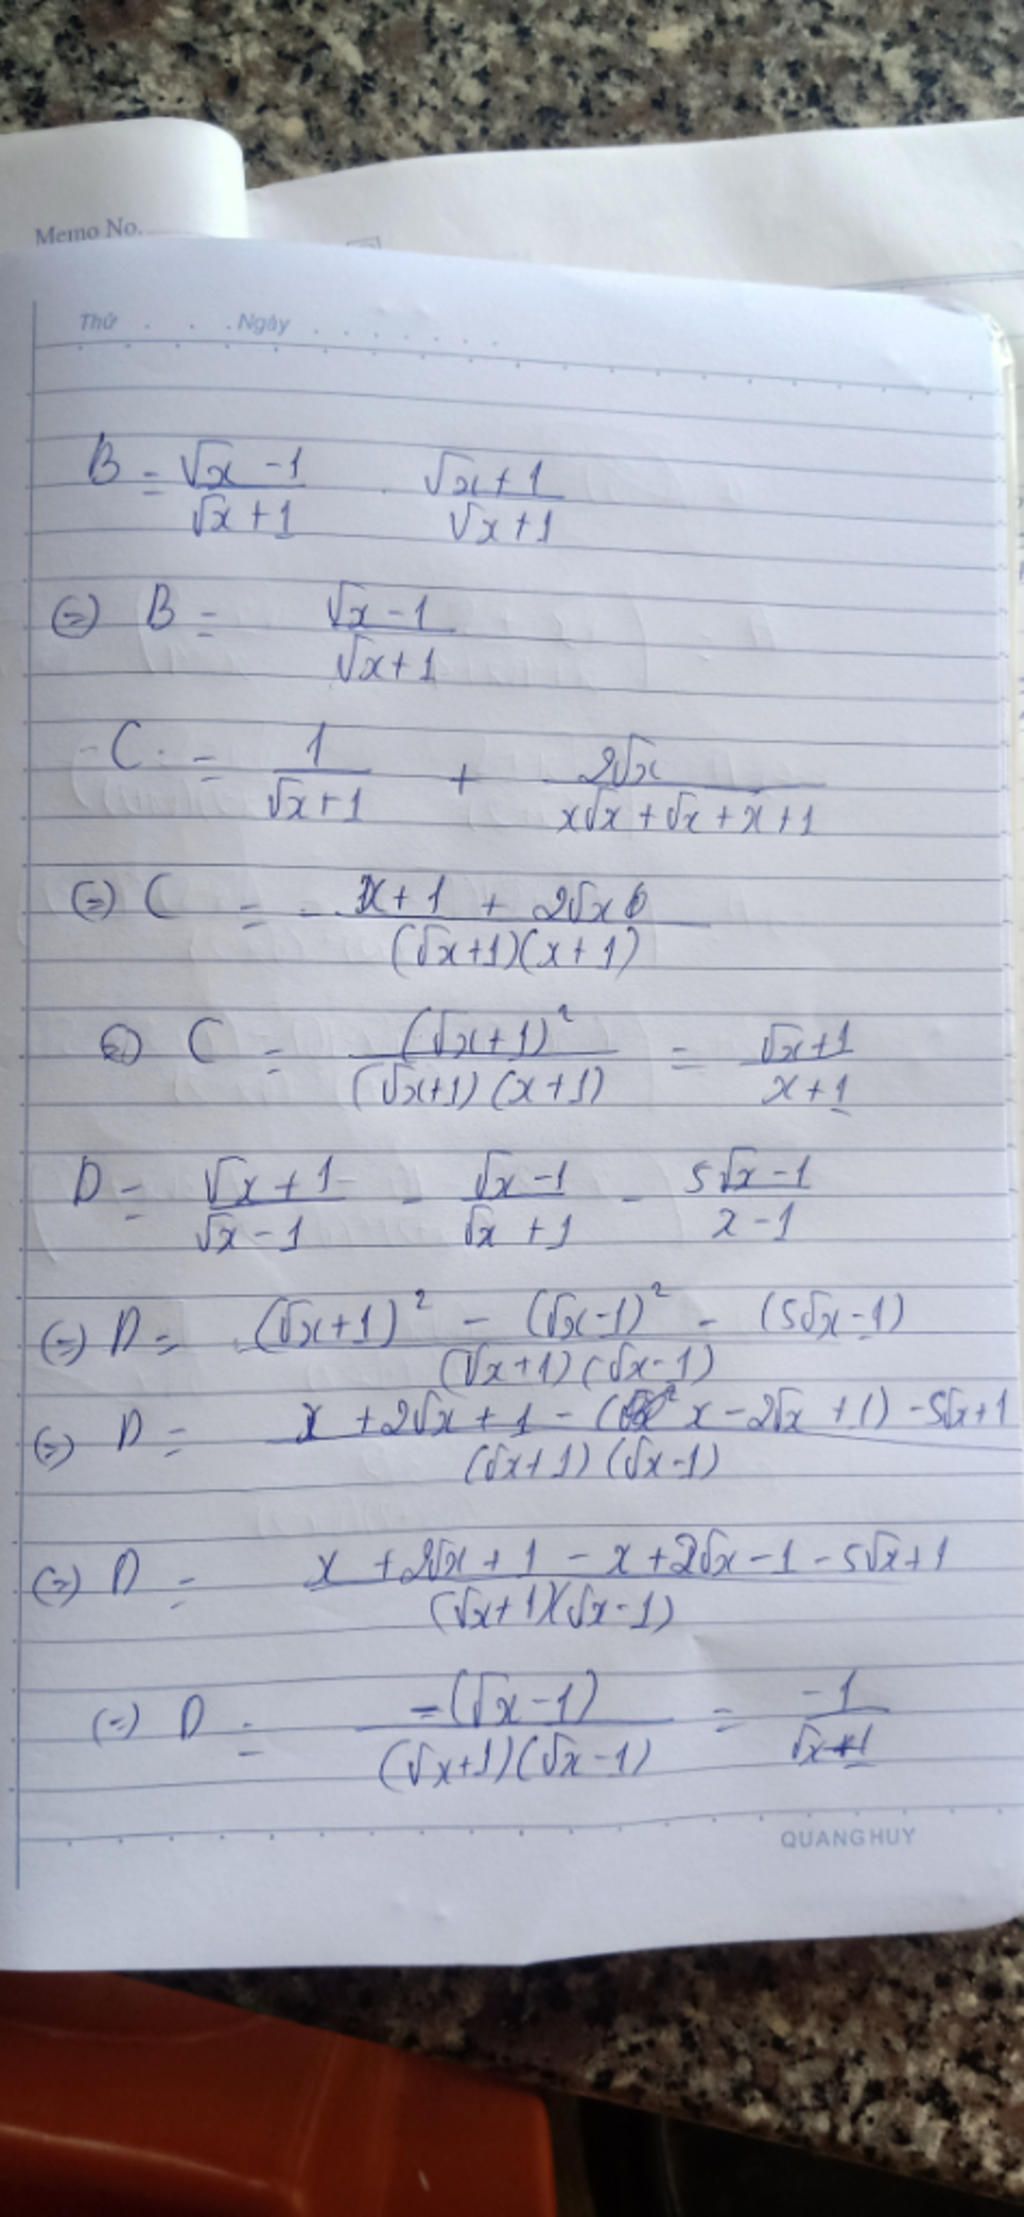 Memo No.
Thứ . . . Ngày . . . . . . .
B = (√x - 1)/(√x + 1) . (√x + 1)/(√x + 1)
(=) B = (√x - 1)/(√x + 1)
- C = 1/(√x + 1) + 2√x/(x√x + √x + x + 1)
(=) C = (x + 1 + 2√x)/((√x + 1)(x + 1))
(=) C = (√x + 1)²/((√x + 1)(x + 1)) = (√x + 1)/(x + 1)
D = (√x + 1)/(√x - 1) - (√x - 1)/(√x + 1) - (5√x - 1)/(x - 1)
(=) D = ((√x + 1)² - (√x - 1)² - (5√x - 1))/((√x + 1)(√x - 1))
(=) D = (x + 2√x + 1 - (x - 2√x + 1) - 5√x + 1)/((√x + 1)(√x - 1))
(=) D = (x + 2√x + 1 - x + 2√x - 1 - 5√x + 1)/((√x + 1)(√x - 1))
(=) D = -(√x - 1)/((√x + 1)(√x - 1)) = -1/(√x + 1)
QUANG HUY